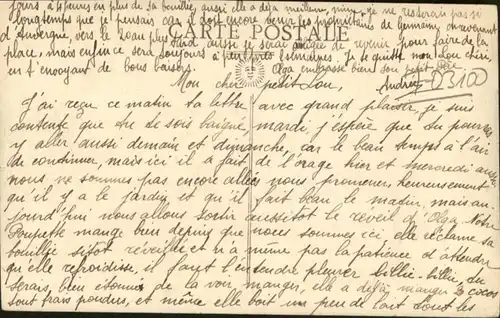 jours à Lepuix, en plus de sa bouillie, aussi elle a déjà meilleure mine. Je ne resterai pas si
longtemps que je pensais car il doit encore venir les propriétaires de Germaine en revenant
d'Auvergne, vers le 20 au plus tard, aussi je serai obligée de revenir pour faire de la
place, mais enfin ce sera toujours à peu près semaines. Je te quitte mon Lou chéri,
en t'envoyant de bons baisers. Olga embrasse bien son petit
CARTE POSTALE
Andrée
D3100
Mon cher petit Lou,
J'ai reçu ce matin ta lettre avec grand plaisir, je suis
contente que tu te sois baigné mardi, j'espère que tu pourras
y aller aussi demain et dimanche, car le beau temps a l'air
de continuer, mais ici il a fait de l'orage hier et mercredi aussi
nous ne sommes pas encore allées nous promener, heureusement
qu'il y a le jardin et qu'il fait beau le matin, mais au-
jourd'hui nous allons sortir aussitôt le réveil d'Olga. Notre
Poupette mange bien depuis que nous sommes ici, elle réclame sa
bouillie sitôt réveillée et n'a même pas la patience d'attendre
qu'elle refroidisse, il faut l'entendre pleurer billie-billie, tu
serais bien étonné de la voir manger, elle a déjà mangé 2 cocos
tout frais pondus, et même elle boit un peu de lait tous les